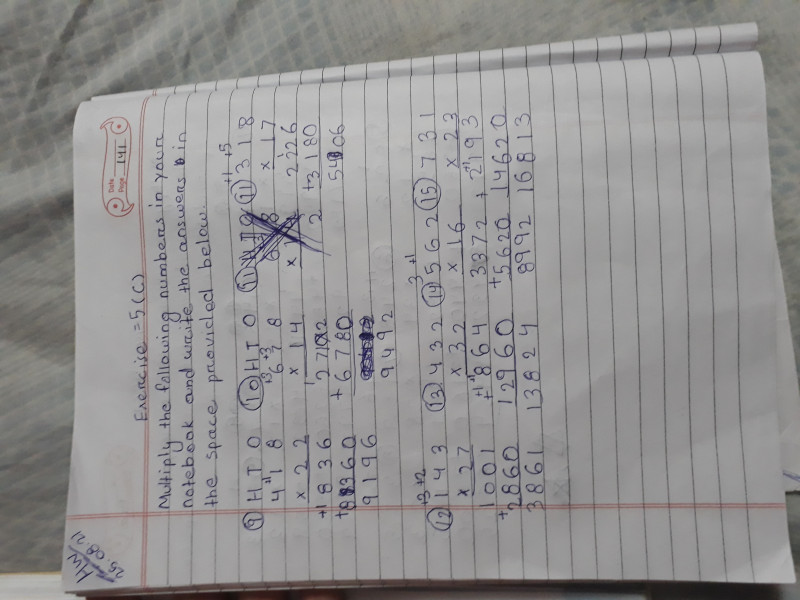 HW
25.08.21
Date
Page 141
Exercise = 5 (C)
Multiply the following numbers in your
notebook and write the answers in
the space provided below.
⑨ H T O ⑩ H T O ⑪ +1 +5
+1 +3 +3
4 1 8 6 7 8 3 1 8
x 2 2 x 1 4 x 1 7
+1 8 3 6 2 7 1 2 2 2 2 6
+ 8 3 6 0 + 6 7 8 0 + 3 1 8 0
9 1 9 6 9 4 9 2 5 4 0 6
+3 +2 3 +1
⑫ 1 4 3 ⑬ 4 3 2 ⑭ 5 6 2 ⑮ 7 3 1
x 2 7 x 3 2 x 1 6 x 2 3
1 0 0 1 8 6 4 3 3 7 2 2 1 9 3
+ 2 8 6 0 + 1 2 9 6 0 + 5 6 2 0 + 1 4 6 2 0
3 8 6 1 1 3 8 2 4 8 9 9 2 1 6 8 1 3